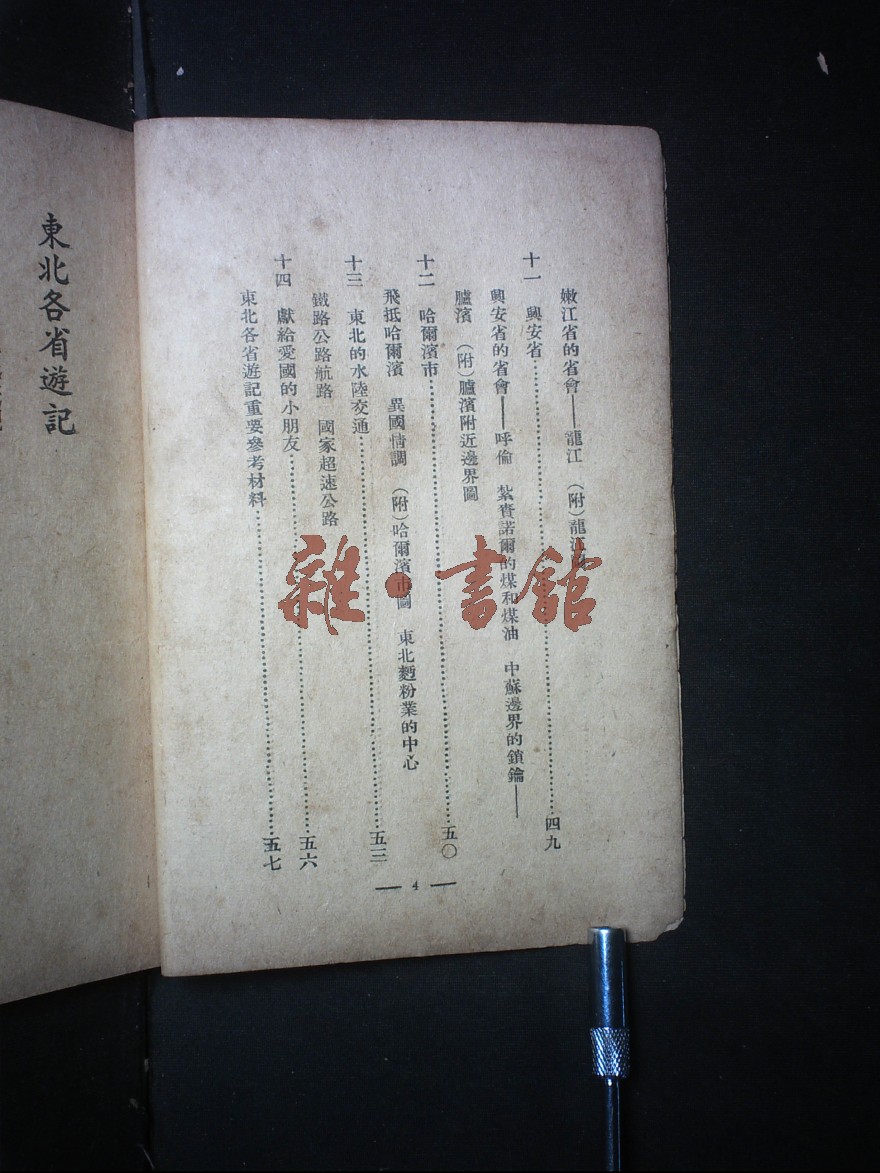 嫩江省的省會——龍江 （附）龍江
十一 興安省……四九
興安省的省會——呼倫 紮賚諾爾的煤和煤油 中蘇邊界的鎖鑰——
臚濱 （附）臚濱附近邊界圖
十二 哈爾濱市……五〇
飛抵哈爾濱 異國情調 （附）哈爾濱市圖 東北麵粉業的中心
十三 東北的水陸交通……五三
鐵路公路航路 國家超速公路
十四 獻給愛國的小朋友……五六
東北各省遊記重要參考材料……五七
— 4 —
東北各省遊記
雜·書館